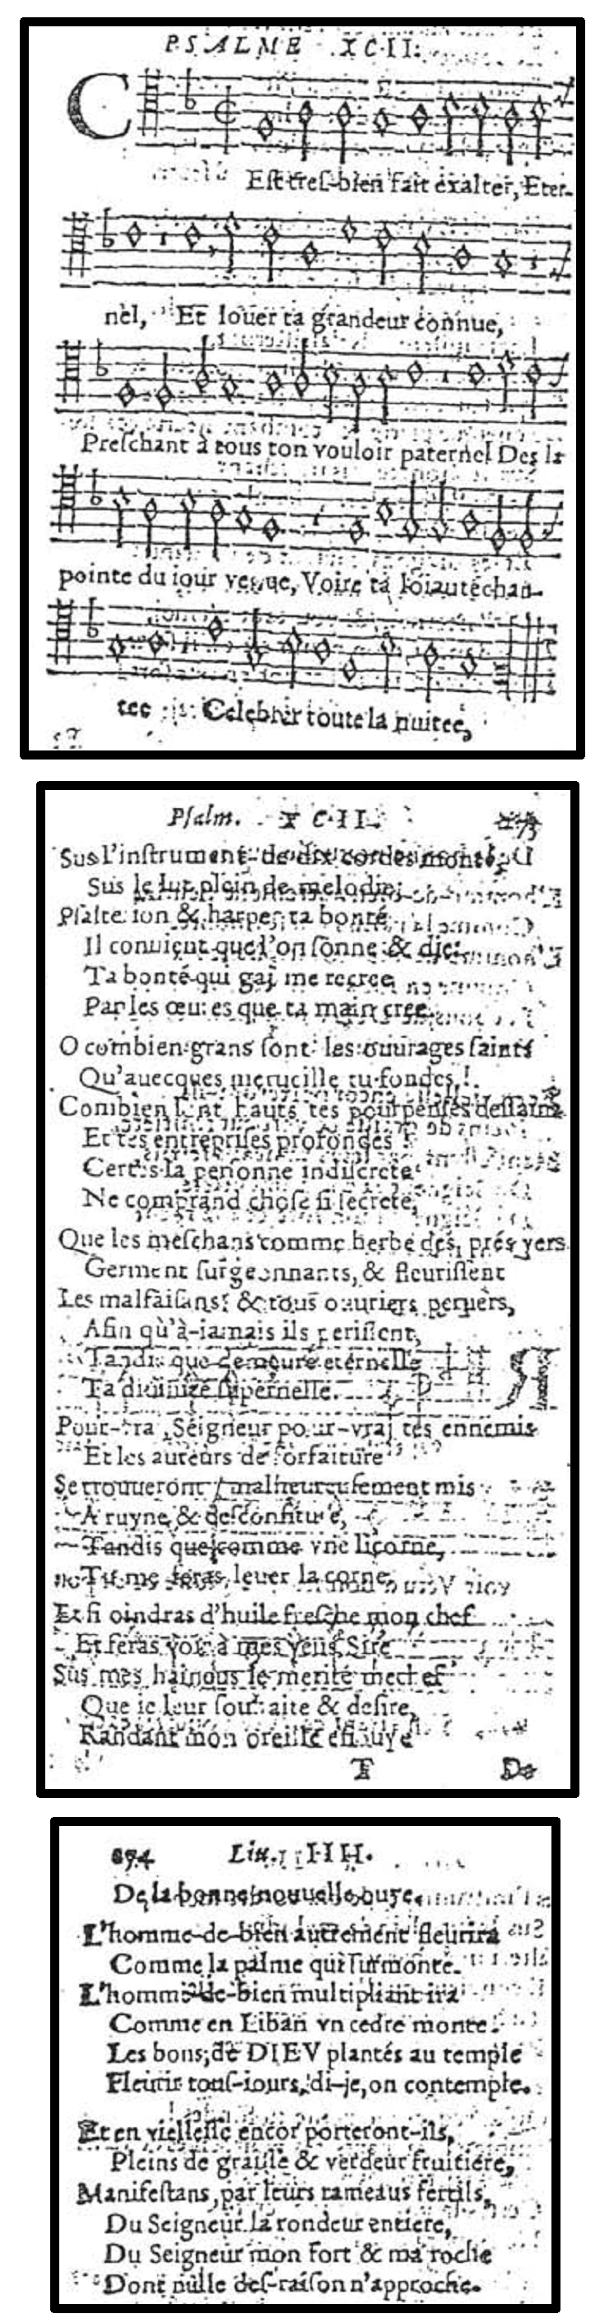 PSALME XCII.
C
Est tres-bien fait exalter, Eter-
nèl, Et louer ta grandeur connue,
Preschant à tous ton vouloir paternel Des la
pointe du iour venue, Voire ta loiauté chan-
tee Celebrer toute la nuitee,
Psalm. XCII.
Sus l'instrument de dix cordes monté,
Sus le lut plein de melodie,
Psalterion & harpe, ta bonté
Il conuient que l'on sonne & die:
Ta bonté qui gaj me recree
Par les œuures que ta main cree.
O combien grans sont les ouurages saints
Qu'auecques merueille tu fondes!
Combien sont hauts tes pourpensés dessains
Et tes entreprises profondes!
Certes la personne indiscrete
Ne comprand chose si secrete,
Que les meschans comme herbe des prés vers
Germent surgeonnants, & fleurissent
Les malfaisans: & tous ouuriers peruèrs,
Afin qu'à-iamais ils perissent,
Tandis que demeure eternelle
Ta diuinité supernelle.
Pour-vraj, Seigneur pour-vraj tes ennemis
Et les auteurs de forfaiture
Se trouueront malheureusement mis
A ruyne & desconfiture,
Tandis que comme vne licorne,
Tu me feras leuer la corne,
Et si oindras d'huile fresche mon chef
Et feras voir à mes yeus, Sire
Sus mes haineus le merité mechef
Que ie leur souhaite & desire,
Randant mon oreille esiouye
T De
674 Liu. IIII.
De la bonne nouuelle ouye.
L'homme-de-bien autrement fleurira
Comme la palme qui surmonte.
L'homme-de-bien multipliant ira
Comme en Liban vn cedre monte.
Les bons, de DIEV plantés au temple
Fleurir tous-iours, di-je, on contemple.
Et en viellesse encor porteront-ils,
Pleins de graisse & verdeur fruitiere,
Manifestans, par leurs rameaus fertils,
Du Seigneur la rondeur entiere,
Du Seigneur mon fort & ma roche
Dont nulle des-raison n'approche.